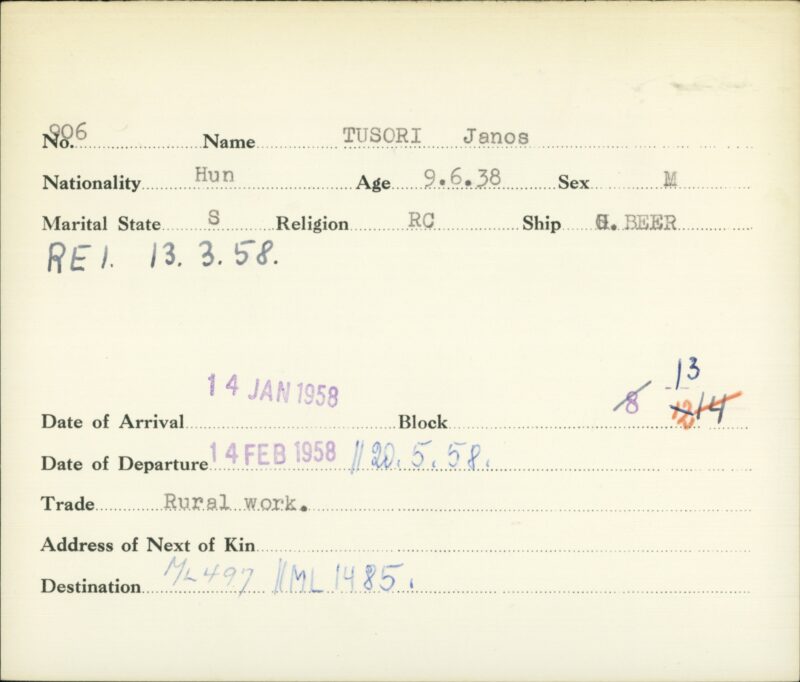 No. 906 Name TUSORI Janos
Nationality Hun Age 9.6.38 Sex M
Marital State S Religion RC Ship G. BEER
RE 1. 13. 3. 58.
13
14 JAN 1958
Date of Arrival Block 8 12 14
Date of Departure 14 FEB 1958 // 20. 5. 58.
Trade Rural work.
Address of Next of Kin
Destination ML 497 // ML 1485.